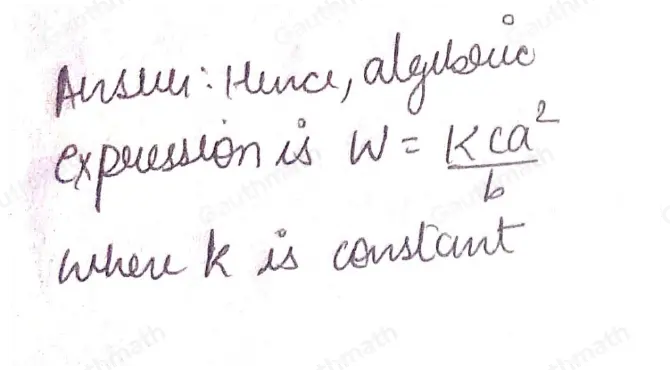 Answer: Hence, algebraic
expression is W = Kca²/b
where k is constant